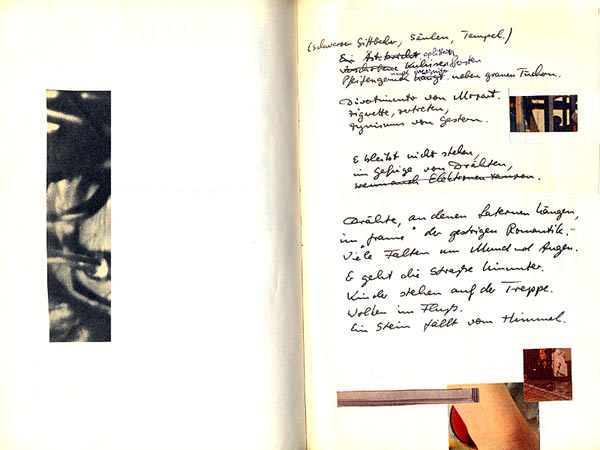 (schwerer Giftbecher, Säulen, Tempel.)
Ein Ast bricht
verschobene Kulissenpfosten
hängt, neben grauen Tüchern.
Divertimento von Mozart.
Zigarette, zertreten,
Zynismus von Gestern.
E bleibt nicht stehen,
im Gefüge von Drähten,
wenn auch Elektronen tanzen.
Drähte, an denen Laternen hängen,
im "frame" der gestrigen Romantik.-
Viele Falten um Mund und Augen.
E geht die Straße hinunter.
Kinder stehen auf der Treppe.
Wolken im Fluß.
Ein Stein fällt vom Himmel.